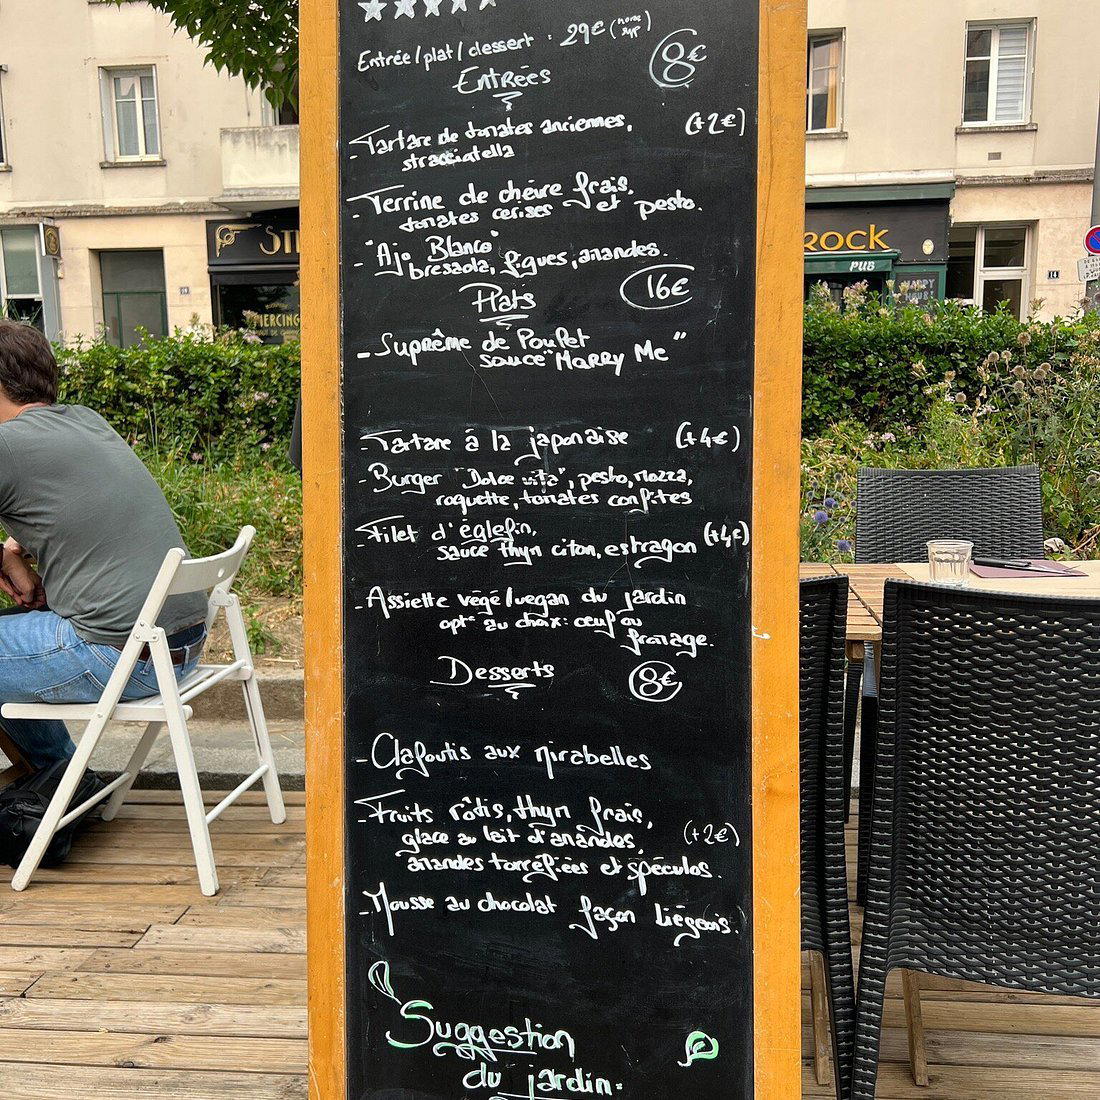 Entrée/plat/dessert : 29€ (hors sup)
Entrées 8€
- Tartare de tomates anciennes, (+2€)
stracciatella
- Terrine de chèvre frais,
tomates cerises et pesto.
- "Ajo Blanco"
bresaola, figues, amandes.
Plats 16€
- Suprême de Poulet
sauce "Marry Me"
- Tartare à la japonaise (+4€)
- Burger "Dolce vita", pesto, mozza,
roquette, tomates confites
- Filet d'églefin, (+4€)
sauce thym citon, estragon
- Assiette végé/vegan du jardin
opt° au choix: œuf ou
fromage.
Desserts 8€
- Clafoutis aux mirabelles
- Fruits rôtis, thym frais,
glace au lait d'amandes, (+2€)
amandes torréfiées et spéculos.
- Mousse au chocolat façon liégeois.
Suggestion
du jardin:
PIERCING
ROCK
PUB
HAPPY
HOUR
14